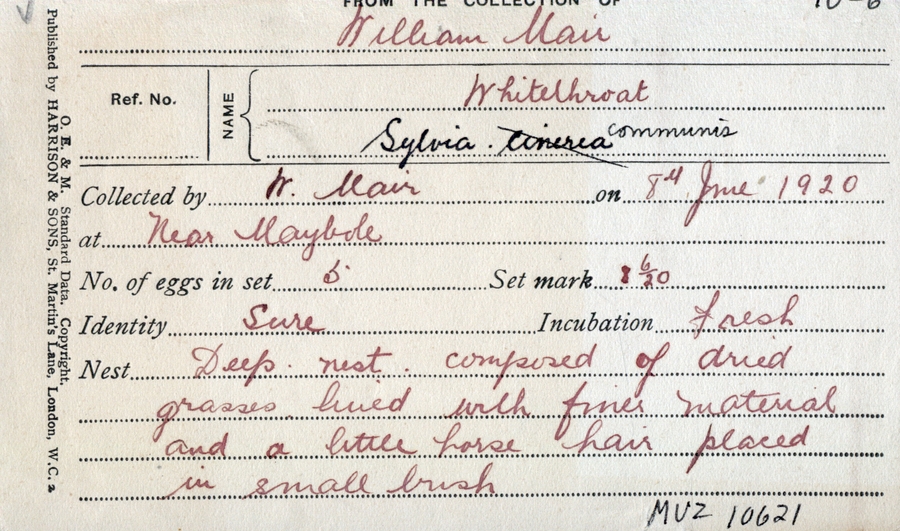 FROM THE COLLECTION OF
William Mair
Ref. No.
NAME
Whitethroat
Sylvia . cinerea communis
Collected by W. Mair on 8th June 1920
at Near Maybole
No. of eggs in set 5 Set mark 8 6/20
Identity Sure Incubation fresh
Nest Deep nest . composed of dried
grasses lined with finer material
and a little horse hair placed
in small brush
MVZ 10621
O. E. & M. Standard Data. Copyright.
Published by HARRISON & SONS, St. Martin's Lane, London, W.C. 2